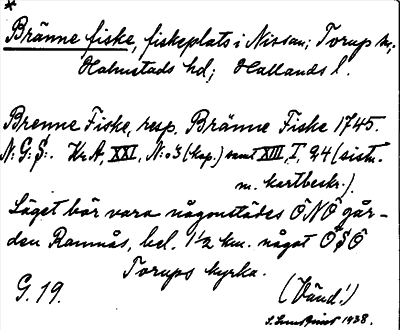 *
Bränne fiske, fiskeplats i Nissan; Torup sn;
Halmstads hd; Hallands l.
Brenne Fiske, resp. Bränne Fiske 1745.
N:G:S:. Kr.A, XXI, N:o 3 (kop.) samt XIII, I, 24 (sistn.
m. kartbeskr.).
Läget bör vara någonstädes ÖNÖ går-
den Ramnås, bel. 1½ km. något ÖSÖ
Torups kyrka.
G. 19.
(Vänd!)
1938.